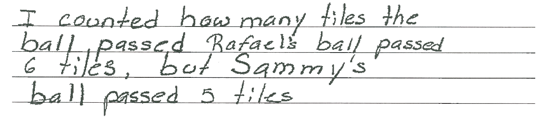 I counted how many tiles the
ball passed Rafael's ball passed
6 tiles, but Sammy's
ball passed 5 tiles